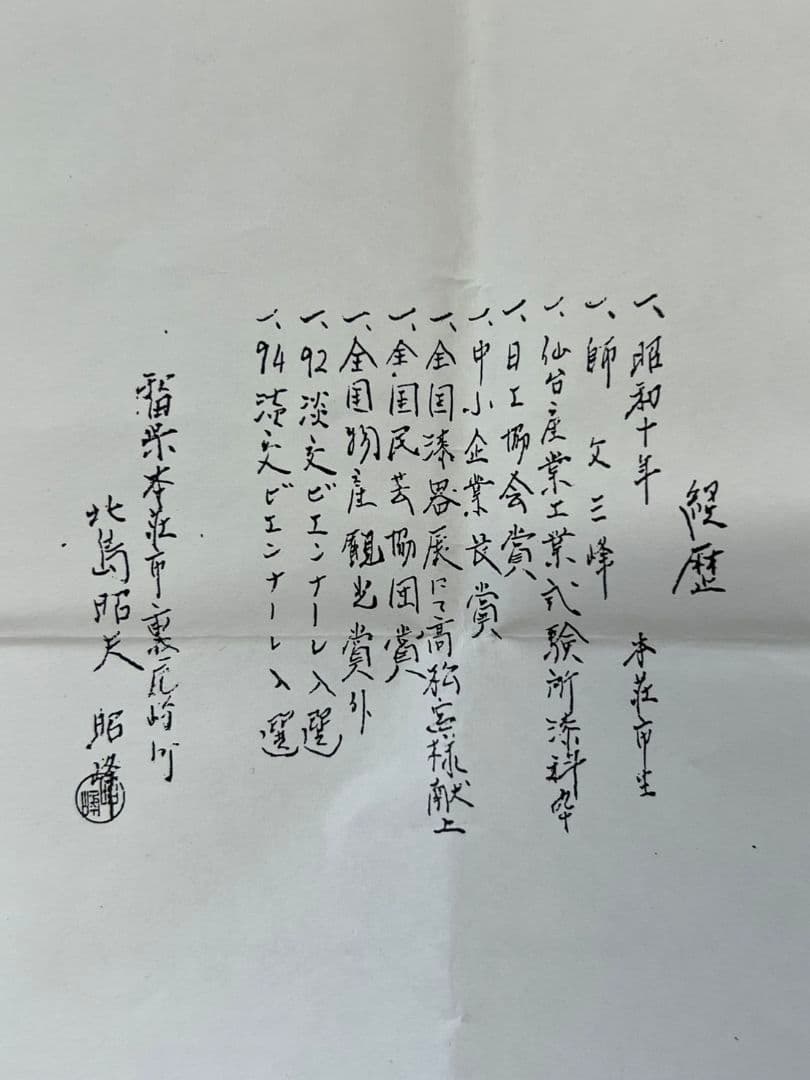 経歴
一、昭和十年 本荘市生
一、師 文三峰
一、仙台産業工業式験所漆科卆
一、日工協会賞
一、中小企業長賞
一、全国漆器展にて高松宮様献上
一、全国民芸協団賞
一、全国物産観光賞外
一、92淡交ビエンナーレ入選
一、94淡交ビエンナーレ入選
県本荘市裏尾崎町
北島昭夫 昭峰